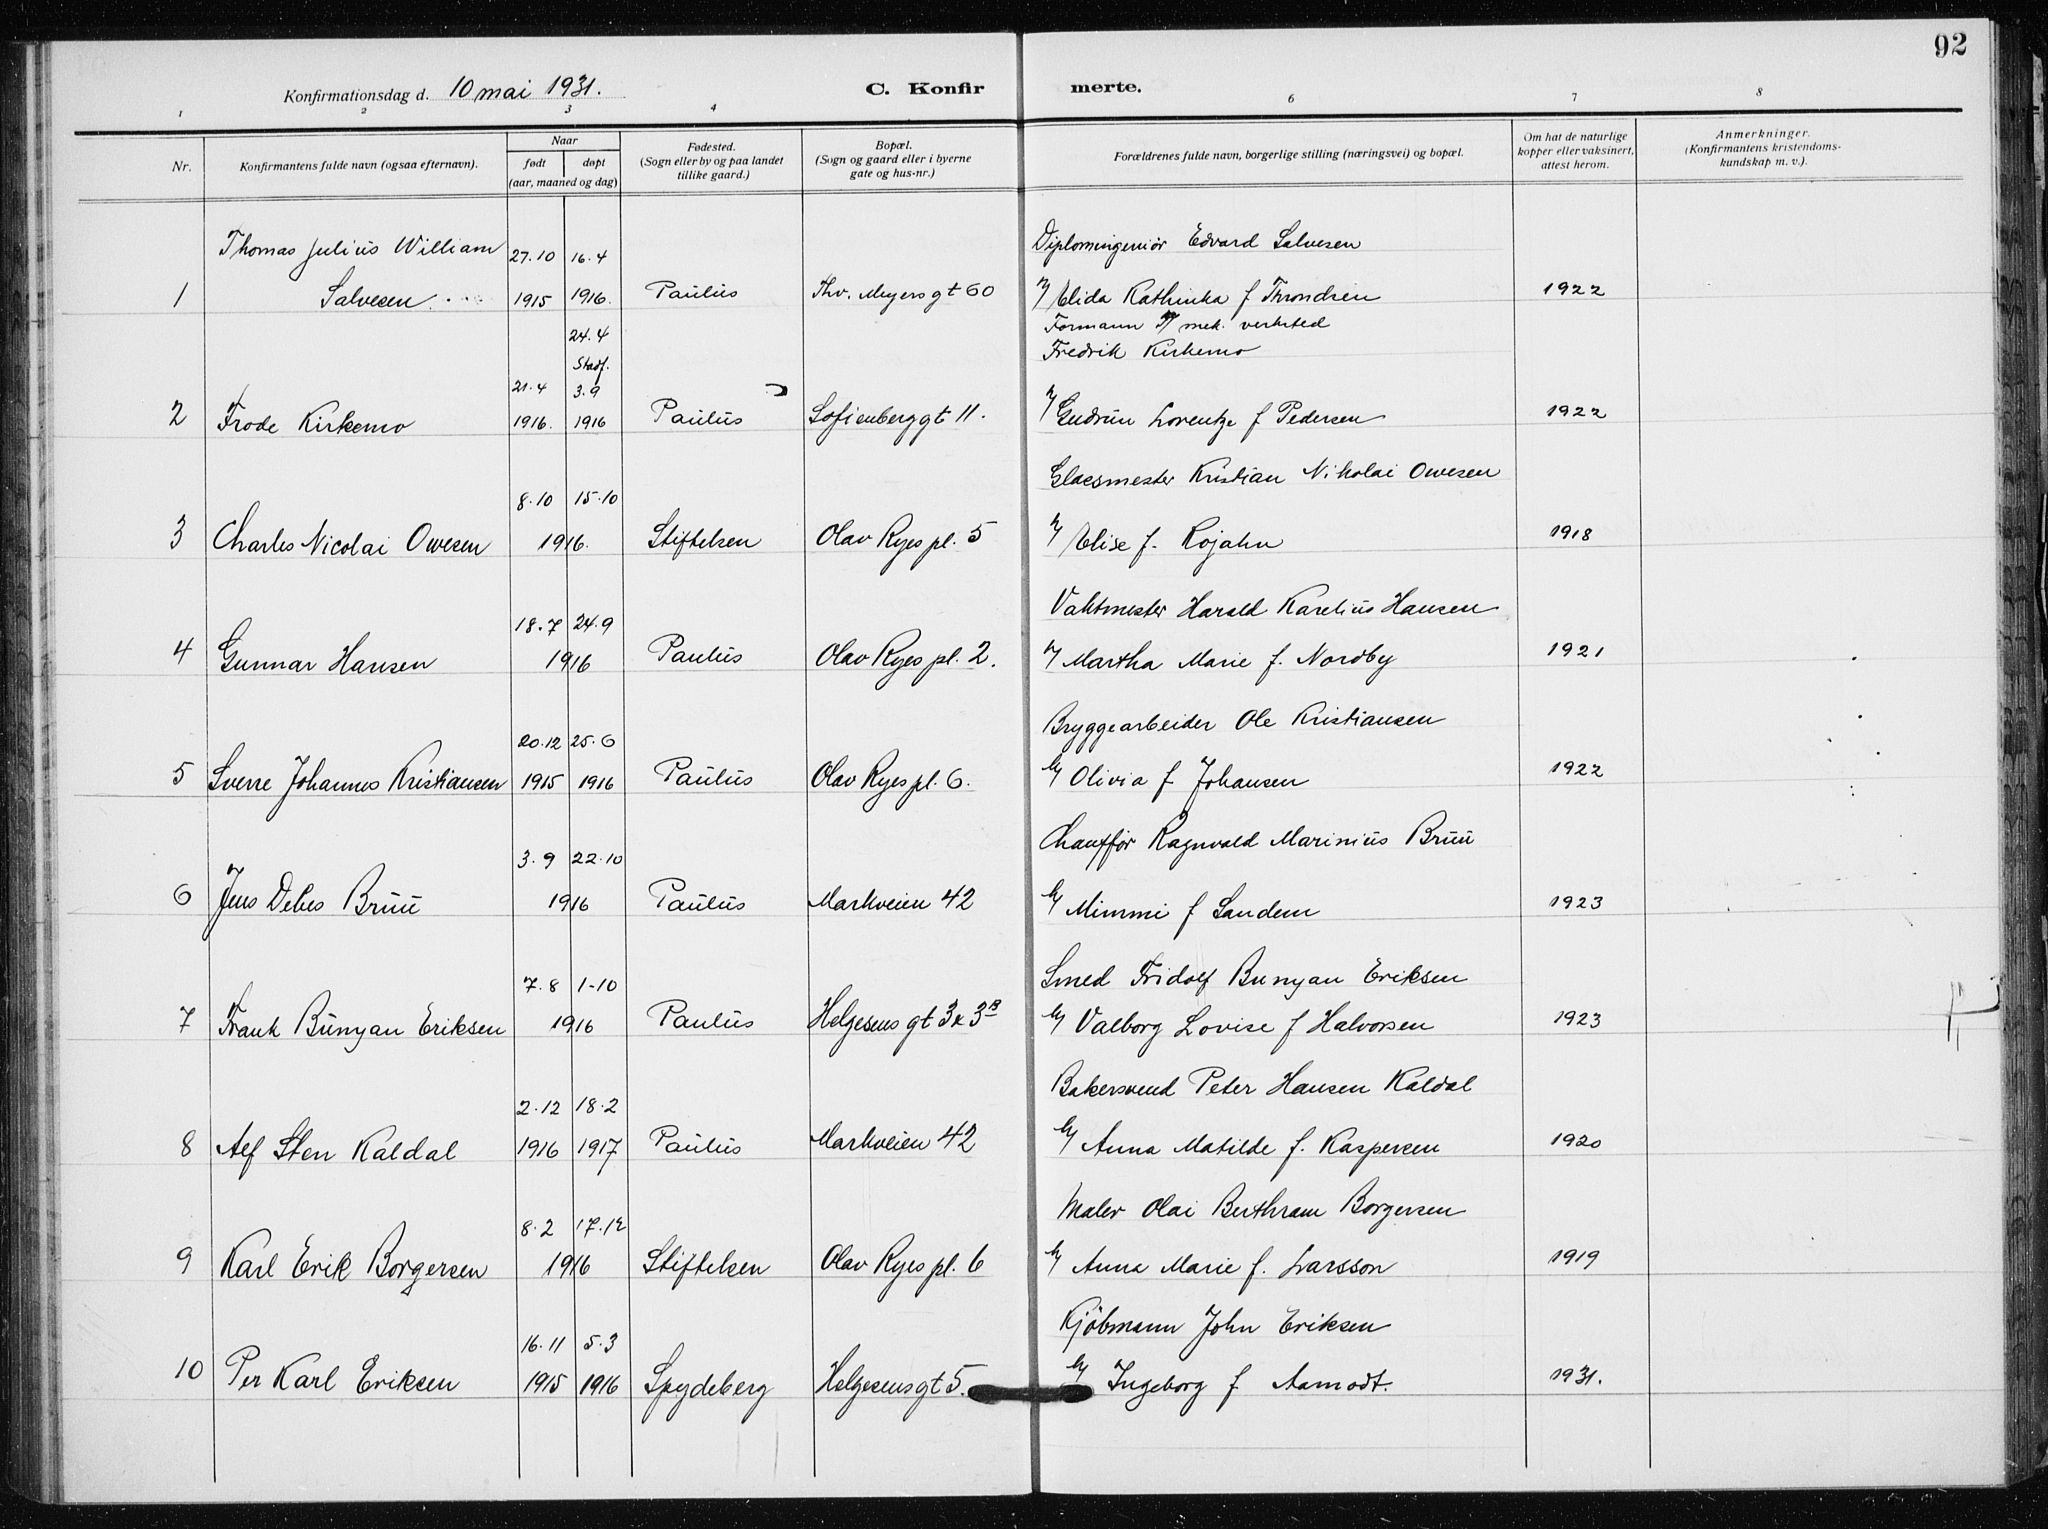 92
Konfirmationsdag d. 10 mai 1931.
C. Konfirmerte.
1 2 3 4 6 7 8
Nr.
Konfirmantens fulde navn (ogsaa efternavn).
Naar
født døpt
(aar, maaned og dag)
Fødested.
(Sogn eller by og paa landet
tillike gaard.)
Bopæl.
(Sogn og gaard eller i byerne
gate og hus-nr.)
Forældrenes fulde navn, borgerlige stilling (næringsvei) og bopæl.
Om hat de naturlige
kopper eller vaksinert,
attest herom.
Anmerkninger.
(Konfirmantens kristendoms-
kundskap m. v.).
Thomas Julius William 27.10 16.4 Diplomingeniør Edvard Salvesen
1 Salvesen 1915 1916. Paulus Thv. Meyersgt 60 Elida Kathinka f Throndsen 1922
24.4 Formann mek. verksted
Stadf. Fredrik Kirkemo
21.4 3.9
2 Frode Kirkemo 1916. 1916 Paulus Sofienberggt 11. Gudrun Lorentze f Pedersen 1922
8.10 15.10 Glassmester Kristian Nikolai Owesen
3 Charles Nicolai Owesen 1916. Stiftelsen Olav Ryes pl. 5 Elise f. Rojahn 1918
18.7 24.9 Vaktmester Harald Karelius Hansen
4 Gunnar Hansen 1916 Paulus Olav Ryes pl. 2. Martha Marie f. Nordby 1921
20.12 25.6 Bryggearbeider Ole Kristiansen
5 Sverre Johannes Kristiansen 1915 1916 Paulus Olav Ryes pl. 6. Olivia f Johansen 1922
3.9 22.10 Chauffør Ragnvald Marinius Bruu
6 Jens Debes Bruu 1916 Paulus Markveien 42 Mimmi f Sandem 1923
7.8 1-10 Smed Fridolf Bunyan Eriksen
7 Frank Bunyan Eriksen 1916 Paulus Helgesens gt 3 x 3B Valborg Lovise f Halvorsen 1923
2.12 18.2 Bakersvend Peter Hansen Kaldal
8 Alf Sten Kaldal 1916 1917 Paulus Markveien 42 Anna Matilde f. Kaspersen 1920
8.2 17.12 Maler Olai Berthram Borgersen
9 Karl Erik Borgersen 1916 Stiftelsen Olav Ryes pl. 6 Anna Marie f. Larsson 1919
16.11 5.3 Kjöbmann John Eriksen
10 Per Karl Eriksen 1915 1916 Spydeberg Helgesensgt 5. Ingeborg f Aamodt. 1931.